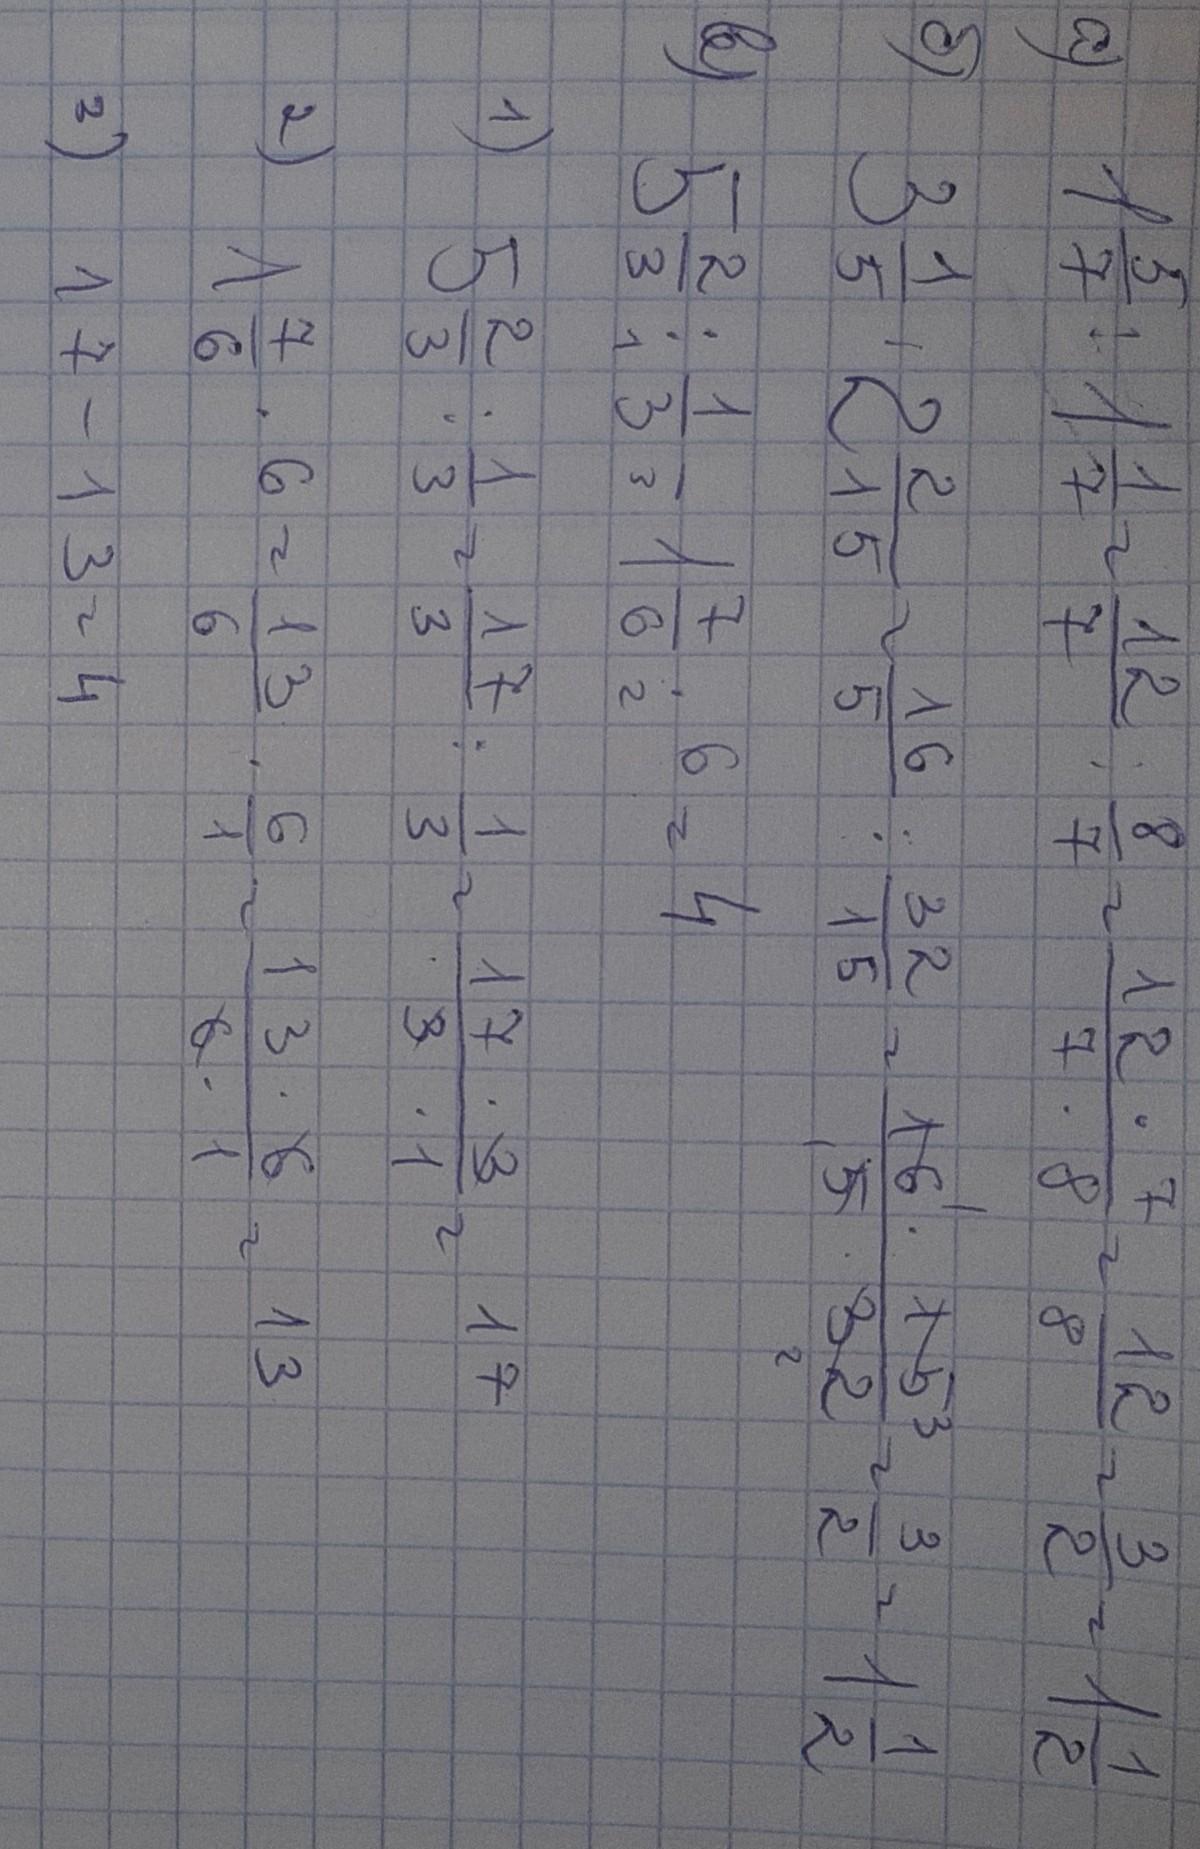 а) 1 5/7 : 1 1/7 = 12/7 : 8/7 = 12·7/7·8 = 12/8 = 3/2 = 1 1/2
б) 3 1/5 : 2 2/15 = 16/5 : 32/15 = 16¹·15³/₁5·32₂ = 3/2 = 1 1/2
в) 5 2/3 : 1/3 - 1 7/6 · 6 = 4
1) 5 2/3 : 1/3 = 17/3 : 1/3 = 17·3/3·1 = 17
2) 1 7/6 · 6 = 13/6 · 6/1 = 13·6/6·1 = 13
3) 17 - 13 = 4